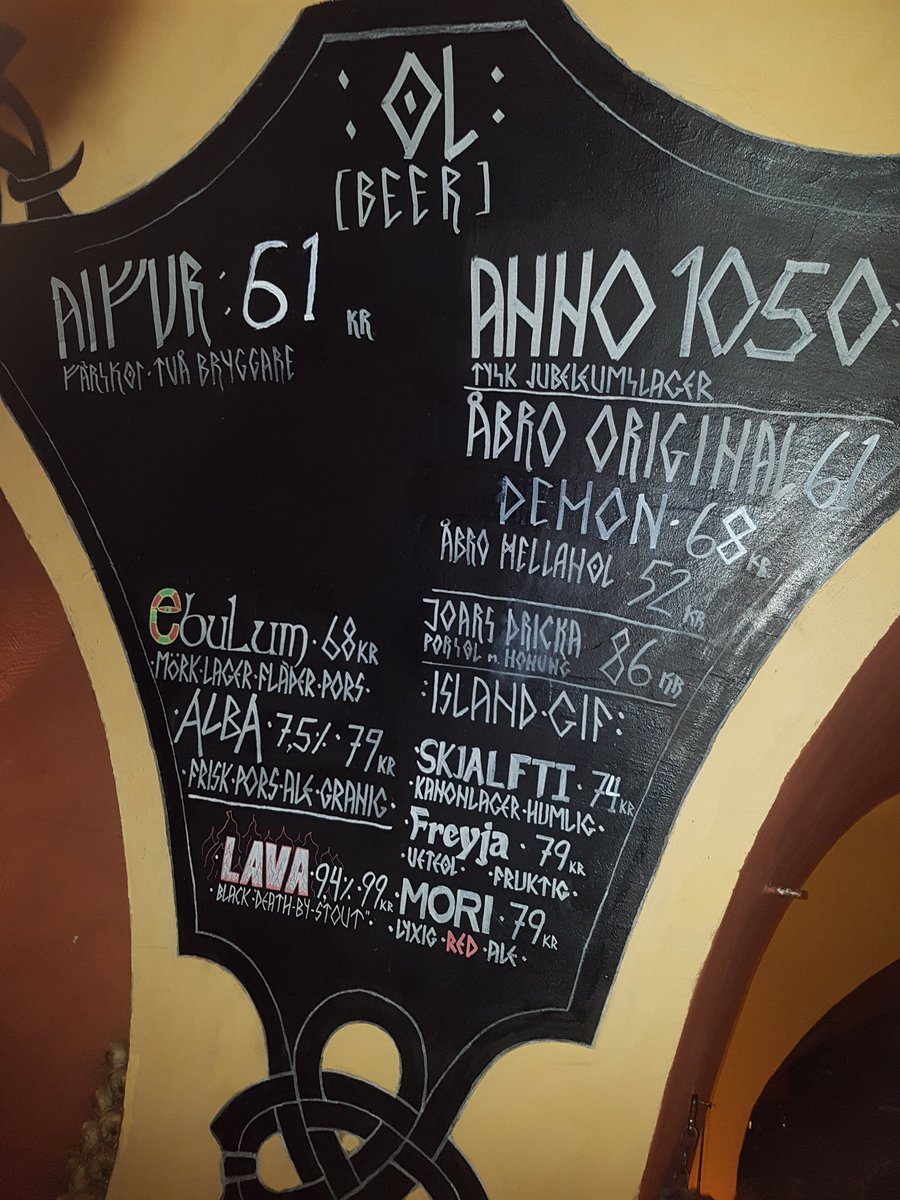 : ÖL :
[BEER]
AIFUR : 61 KR
FÄRSKÖL · TVÅ BRYGGARE
ANNO 1050 :
TYSK JUBELEUMSLAGER
ÅBRO ORIGINAL 61
DEMON · 68 KR
ÅBRO MELLANÖL 52 KR
JOARS DRICKA 86 KR
PORSÖL M. HONUNG
ebulum · 68 KR
· MÖRK · LAGER · FLÄDER · PORS ·
ALBA · 7,5% · 79 KR
· FRISK · PORS · ALE · GRANIG ·
· LAVA · 9,4% · 99 KR
" BLACK · DEATH · BY · STOUT "
: ISLAND · GIF :
· SKJALFTI · 74 KR
· KANONLAGER · HUMLIG ·
· Freyja · 79 KR
· VETEÖL · FRUKTIG ·
· MORI · 79 KR
· LYXIG · RED · ALE ·